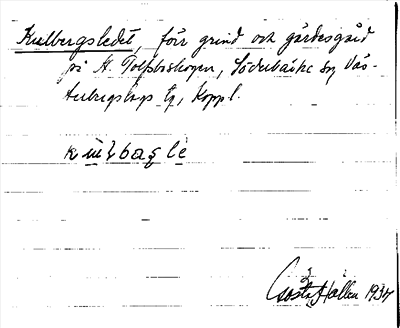 Kulbergsledet, förr grind och gärdesgård
på A. Tolfsboskogen, Söderbärke sn, Väs-
terbergslags tg, Koppl.
kulbaṣ le
Gösta Hallén 1934